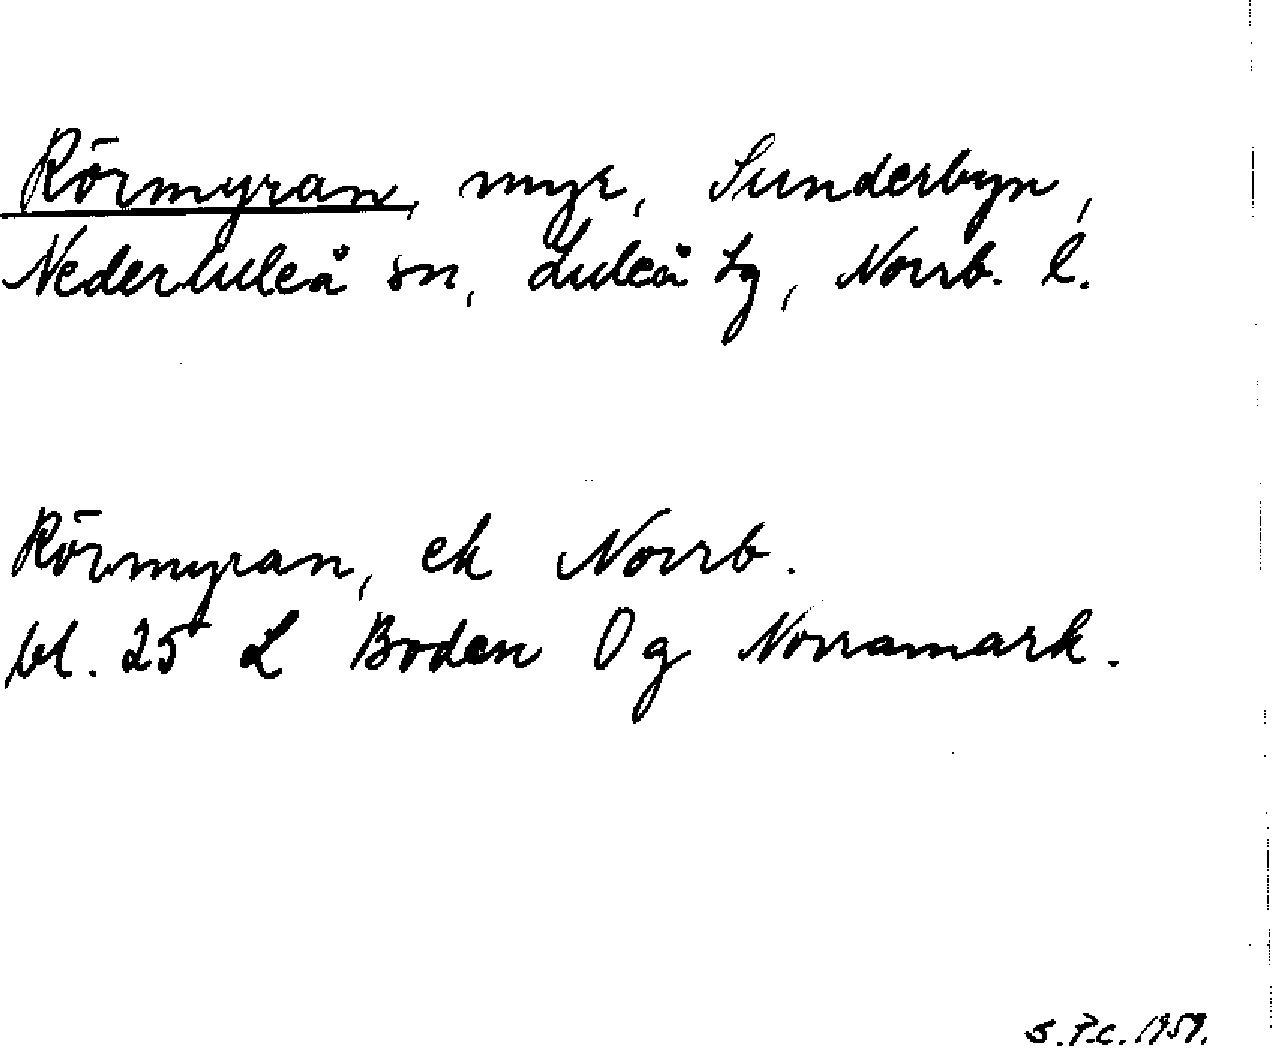 Rörmyran, myr, Sunderbyn,
Nederluleå sn, Luleå tg, Norrb. l.
Rörmyran, ek Norrb.
bl. 25 L Boden Og Norramark.
S.P.C. 1959.